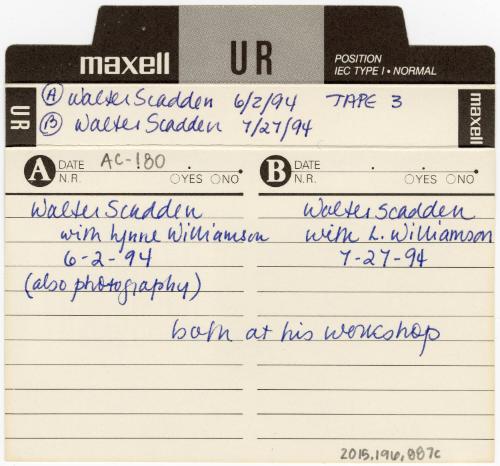 maxell UR POSITION
IEC TYPE I • NORMAL
UR
Ⓐ Walter Scadden 6/2/94 TAPE 3
Ⓑ Walter Scadden 7/27/94
maxell
A DATE AC-180
N.R. ○YES ○NO
B DATE
N.R. ○YES ○NO
Walter Scadden
with Lynne Williamson
6-2-94
(also photography)
Walter Scadden
with L. Williamson
7-27-94
both at his workshop
2015.196.887c